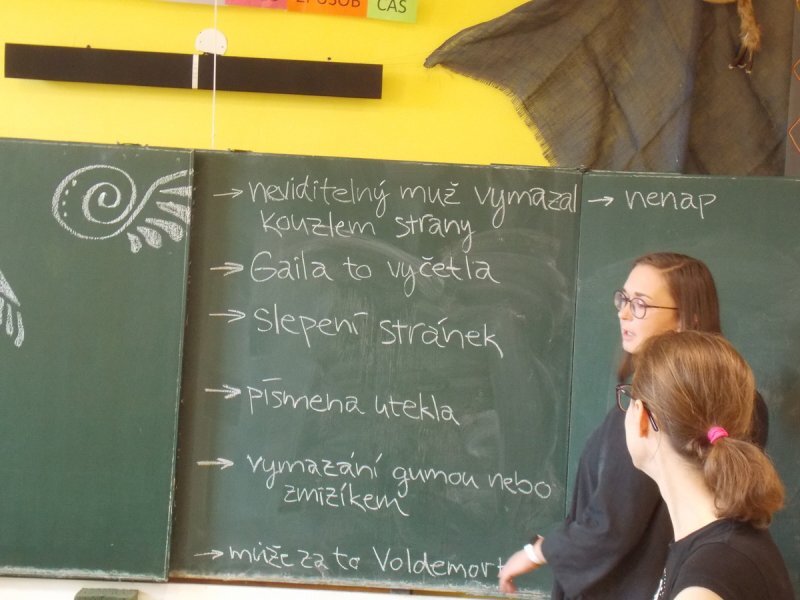 ZPŮSOB
ČAS
→ neviditelný muž vymazal
kouzlem strany
→ Gaila to vyčetla
→ slepení stránek
→ písmena utekla
→ vymazání gumou nebo
zmizíkem
→ může za to Voldemort
→ nenap